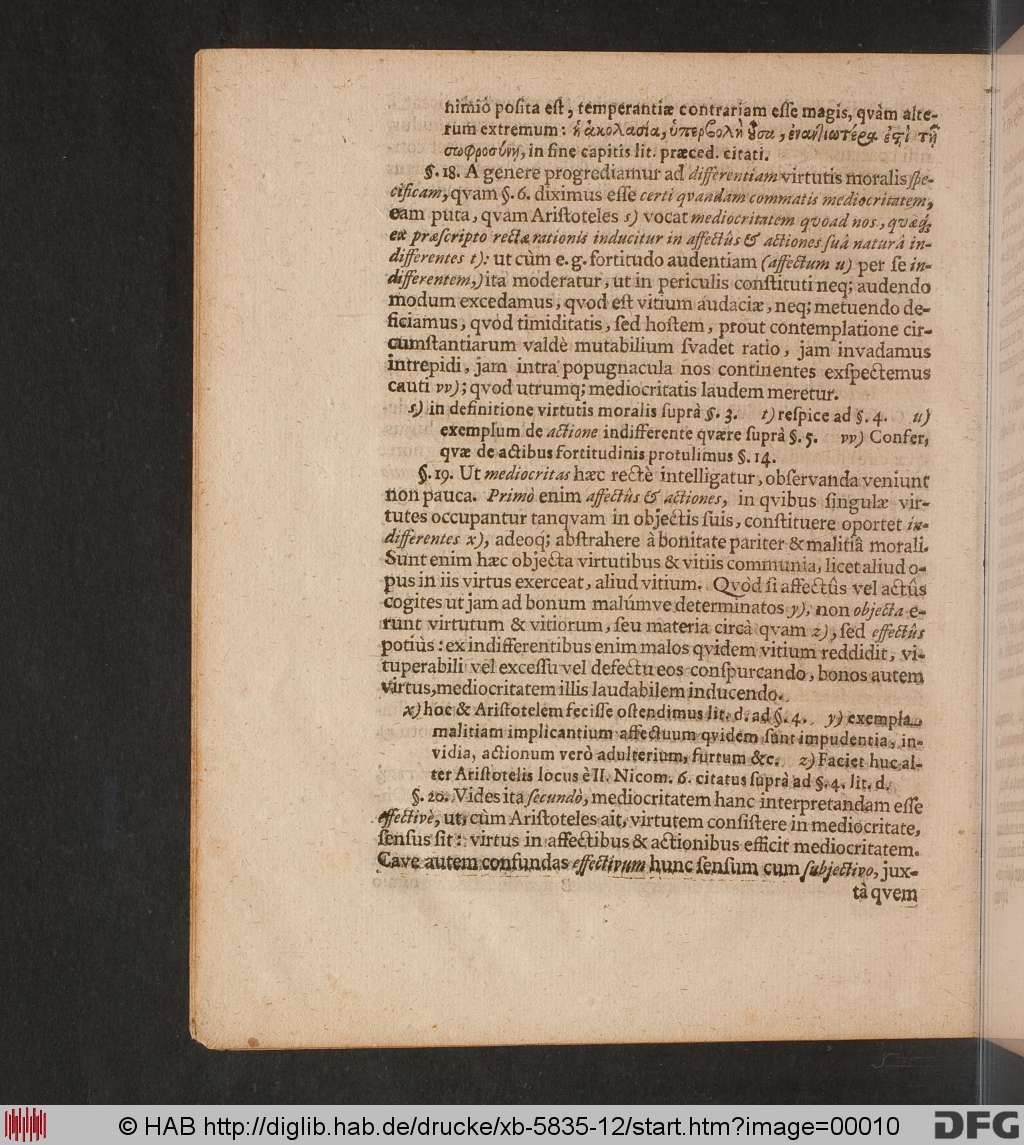 nimiô posita est, temperantiæ contrariam esse magis, qvàm alte-
rum extremum: ἡ ἀκολασία, ὑπερβολὴ οὖσα, ἐναντιωτέρα ἐστὶ τῇ
σωφροσύνῃ, in fine capitis lit. præced. citati.
§. 18. A genere progrediamur ad differentiam virtutis moralis spe-
cificam, qvam §. 6. diximus esse certi qvandam commatis mediocritatem,
eam puta, qvam Aristoteles s) vocat mediocritatem quoad nos, qvæq;
ex præscripto rectæ rationis inducitur in affectûs & actiones suâ naturâ in-
differentes t): ut cùm e. g. fortitudo audentiam (affectum u) per se in-
differentem,) ita moderatur, ut in periculis constituti neq; audendo
modum excedamus, qvod est vitium audaciæ, neq; metuendo de-
ficiamus, qvod timiditatis, sed hostem, prout contemplatione cir-
cumstantiarum valdè mutabilium svadet ratio, jam invadamus
intrepidi, jam intra popugnacula nos continentes exspectemus
cauti vv); qvod utrumq; mediocritatis laudem meretur.
s) in definitione virtutis moralis suprà §. 3. t) respice ad §. 4. u)
exemplum de actione indifferente qvære suprà §. 5. vv) Confer,
qvæ de actibus fortitudinis protulimus §. 14.
§. 19. Ut mediocritas hæc rectè intelligatur, observanda veniunt
non pauca. Primò enim affectûs & actiones, in qvibus singulæ vir-
tutes occupantur tanqvam in objectis suis, constituere oportet in-
differentes x), adeoq; abstrahere à bonitate pariter & malitiâ morali.
Sunt enim hæc objecta virtutibus & vitiis communia, licet aliud o-
pus in iis virtus exerceat, aliud vitium. Qvòd si affectûs vel actûs
cogites ut jam ad bonum malúmve determinatos y), non objecta e-
runt virtutum & vitiorum, seu materia circà qvam z), sed effectûs
potiùs: ex indifferentibus enim malos qvidem vitium reddidit, vi-
tuperabili vel excessu vel defectu eos conspurcando, bonos autem
virtus, mediocritatem illis laudabilem inducendo.
x) hoc & Aristotelem fecisse ostendimus lit. d. ad §. 4. y) exempla
malitiam implicantium affectuum qvidem sunt impudentia, in-
vidia, actionum verò adulterium, furtum &c. z) Faciet huc al-
ter Aristotelis locus è II. Nicom. 6. citatus suprà ad §. 4. lit. d.
§. 20. Vides ita secundò, mediocritatem hanc interpretandam esse
effectivè, ut, cùm Aristoteles ait, virtutem consistere in mediocritate,
sensus sit: virtus in affectibus & actionibus efficit mediocritatem.
Cave autem confundas effectivum hunc sensum cum subjectivo, jux-
tà qvem
© HAB http://diglib.hab.de/drucke/xb-5835-12/start.htm?image=00010
DFG